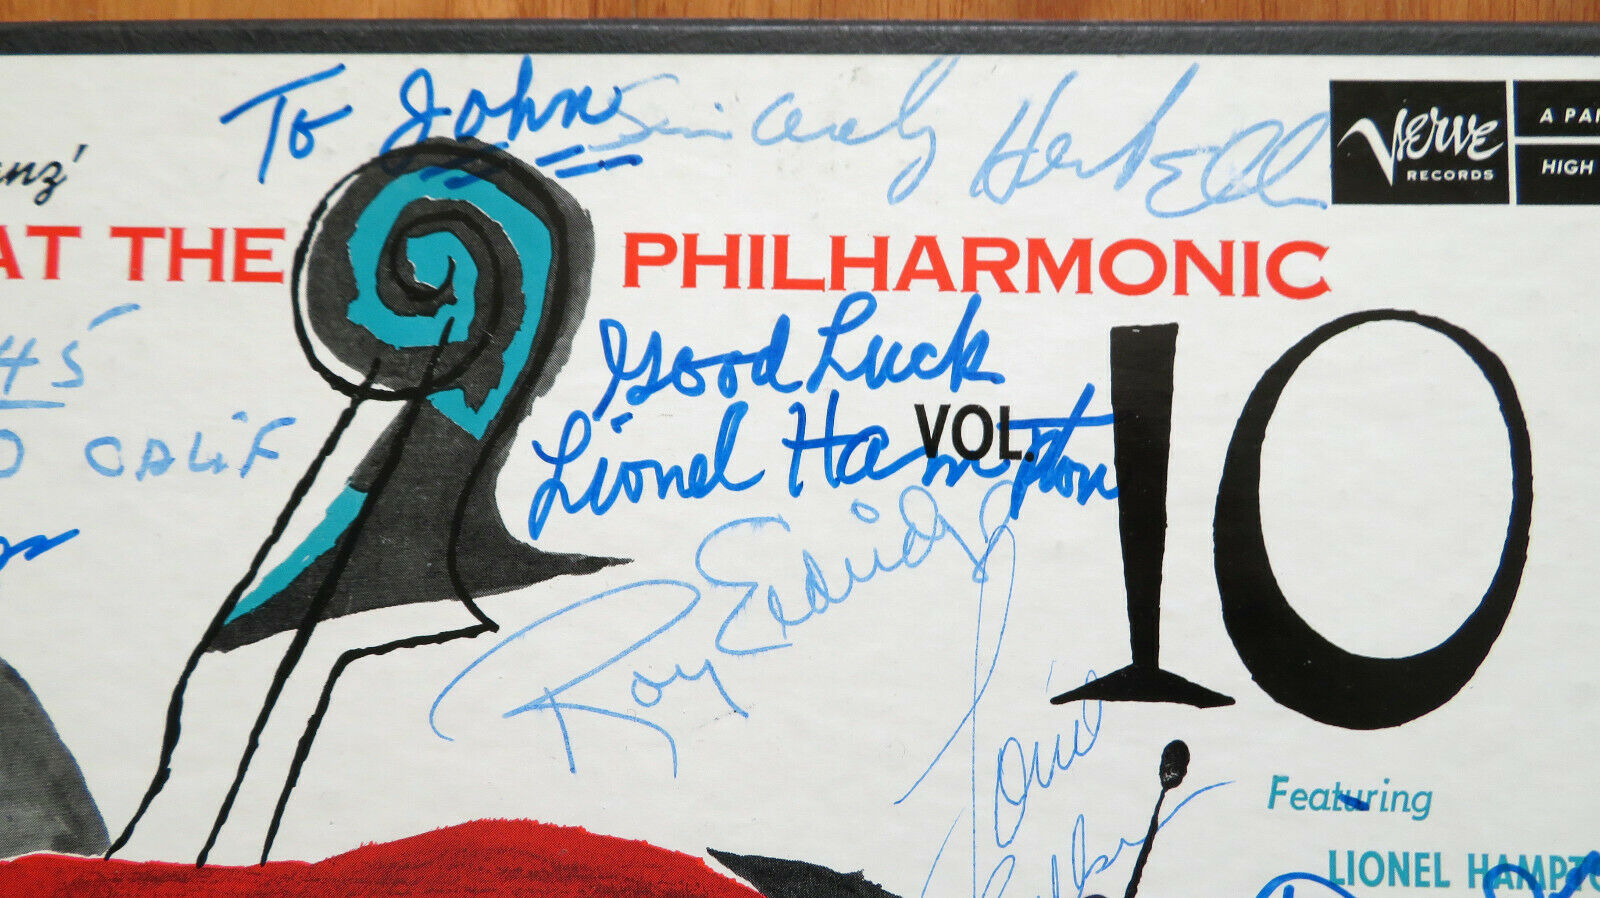 To John Sincerely Herb Ellis
Verve
RECORDS
A PAN
HIGH
anz'
AT THE PHILHARMONIC
Good Luck
Lionel Hampton
VOL. 10
45
CALIF
Roy Eldridge
Louie
Featuring
LIONEL HAMPTO